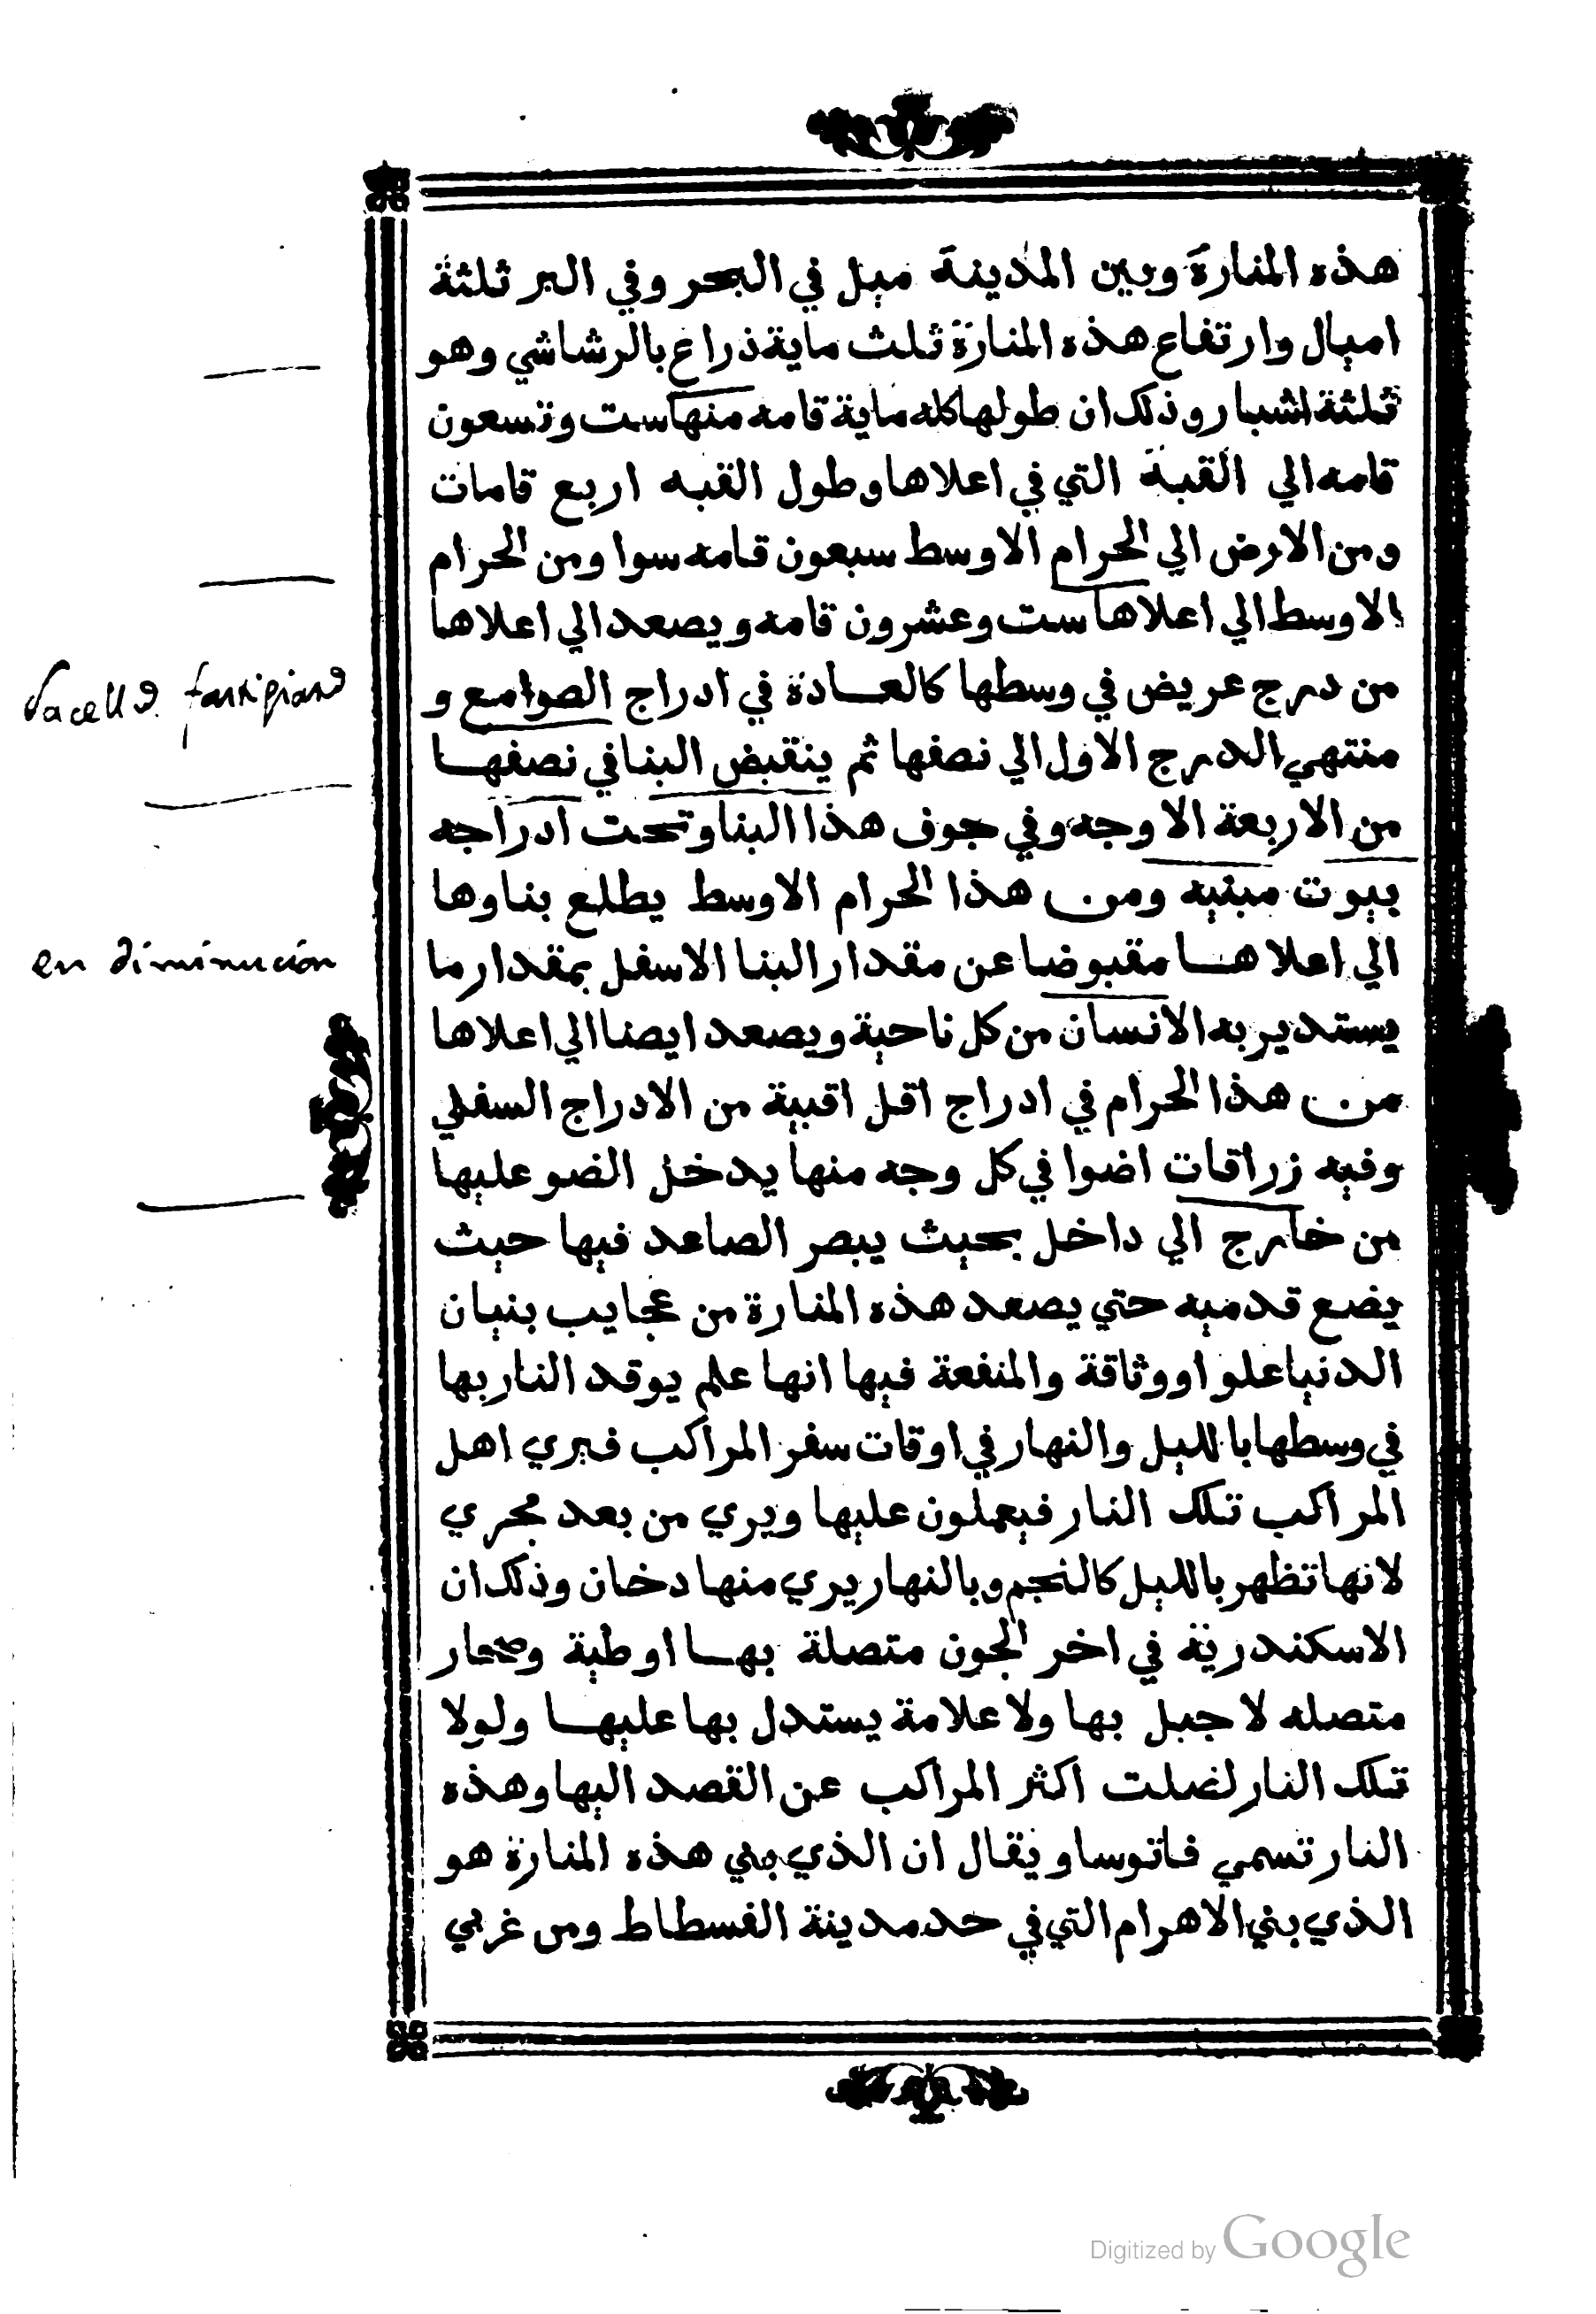 هذه المنارة وبين المدينة ميل في البحر وفي البر ثلثة
اميال وارتفاع هذه المنارة ثلث ماية ذراع بالرشاشي وهو
ثلثة اشبار وذلك ان طولها كله ماية قامه منها ست وتسعون
قامه الي القبة التي في اعلاها وطول القبه اربع قامات
ومن الارض الي الحرام الاوسط سبعون قامه سوا ومن الحرام
الاوسط الي اعلاها ست وعشرون قامه ويصعد الي اعلاها
من درج عريض في وسطها كالعادة في ادراج الصوامع و
منتهي الدرج الاول الي نصفها ثم ينقبض البنا في نصفها
من الاربعة الاوجه وفي جوف هذا البنا وتحت ادراجه
بيوت مبنيه ومن هذا الحرام الاوسط يطلع بناوها
الي اعلاها مقبوضا عن مقدار البنا الاسفل بمقدار ما
يستدير به الانسان من كل ناحية ويصعد ايضا الي اعلاها
من هذا الحرام في ادراج اقل اقبية من الادراج السفلي
وفيه زراقات اضوا في كل وجه منها يدخل الضو عليها
من خارج الي داخل بحيث يبصر الصاعد فيها حيث
يضع قدميه حتي يصعد هذه المنارة من عجايب بنيان
الدنيا علوا ووثاقة والمنفعة فيها انها علم يوقد النار بها
في وسطها بالليل والنهار في اوقات سفر المراكب فيري اهل
المراكب تلك النار فيعملون عليها ويري من بعد مجري
لانها تظهر بالليل كالنجم وبالنهار يري منها دخان وذلك ان
الاسكندرية في اخر الجون متصلة بها اوطية وصحار
متصله لا جبل بها ولا علامة يستدل بها عليها ولولا
تلك النار لضلت اكثر المراكب عن القصد اليها وهذه
النار تسمي فاتوسا ويقال ان الذي بني هذه المنارة هو
الذي بني الاهرام التي في حد مدينة الفسطاط ومن غربي
en diminución
Digitized by Google